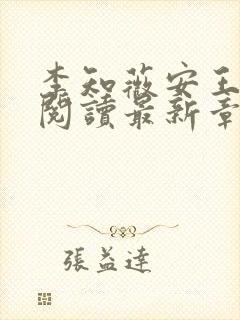 李知薇安王
閱讀最新章
張益達